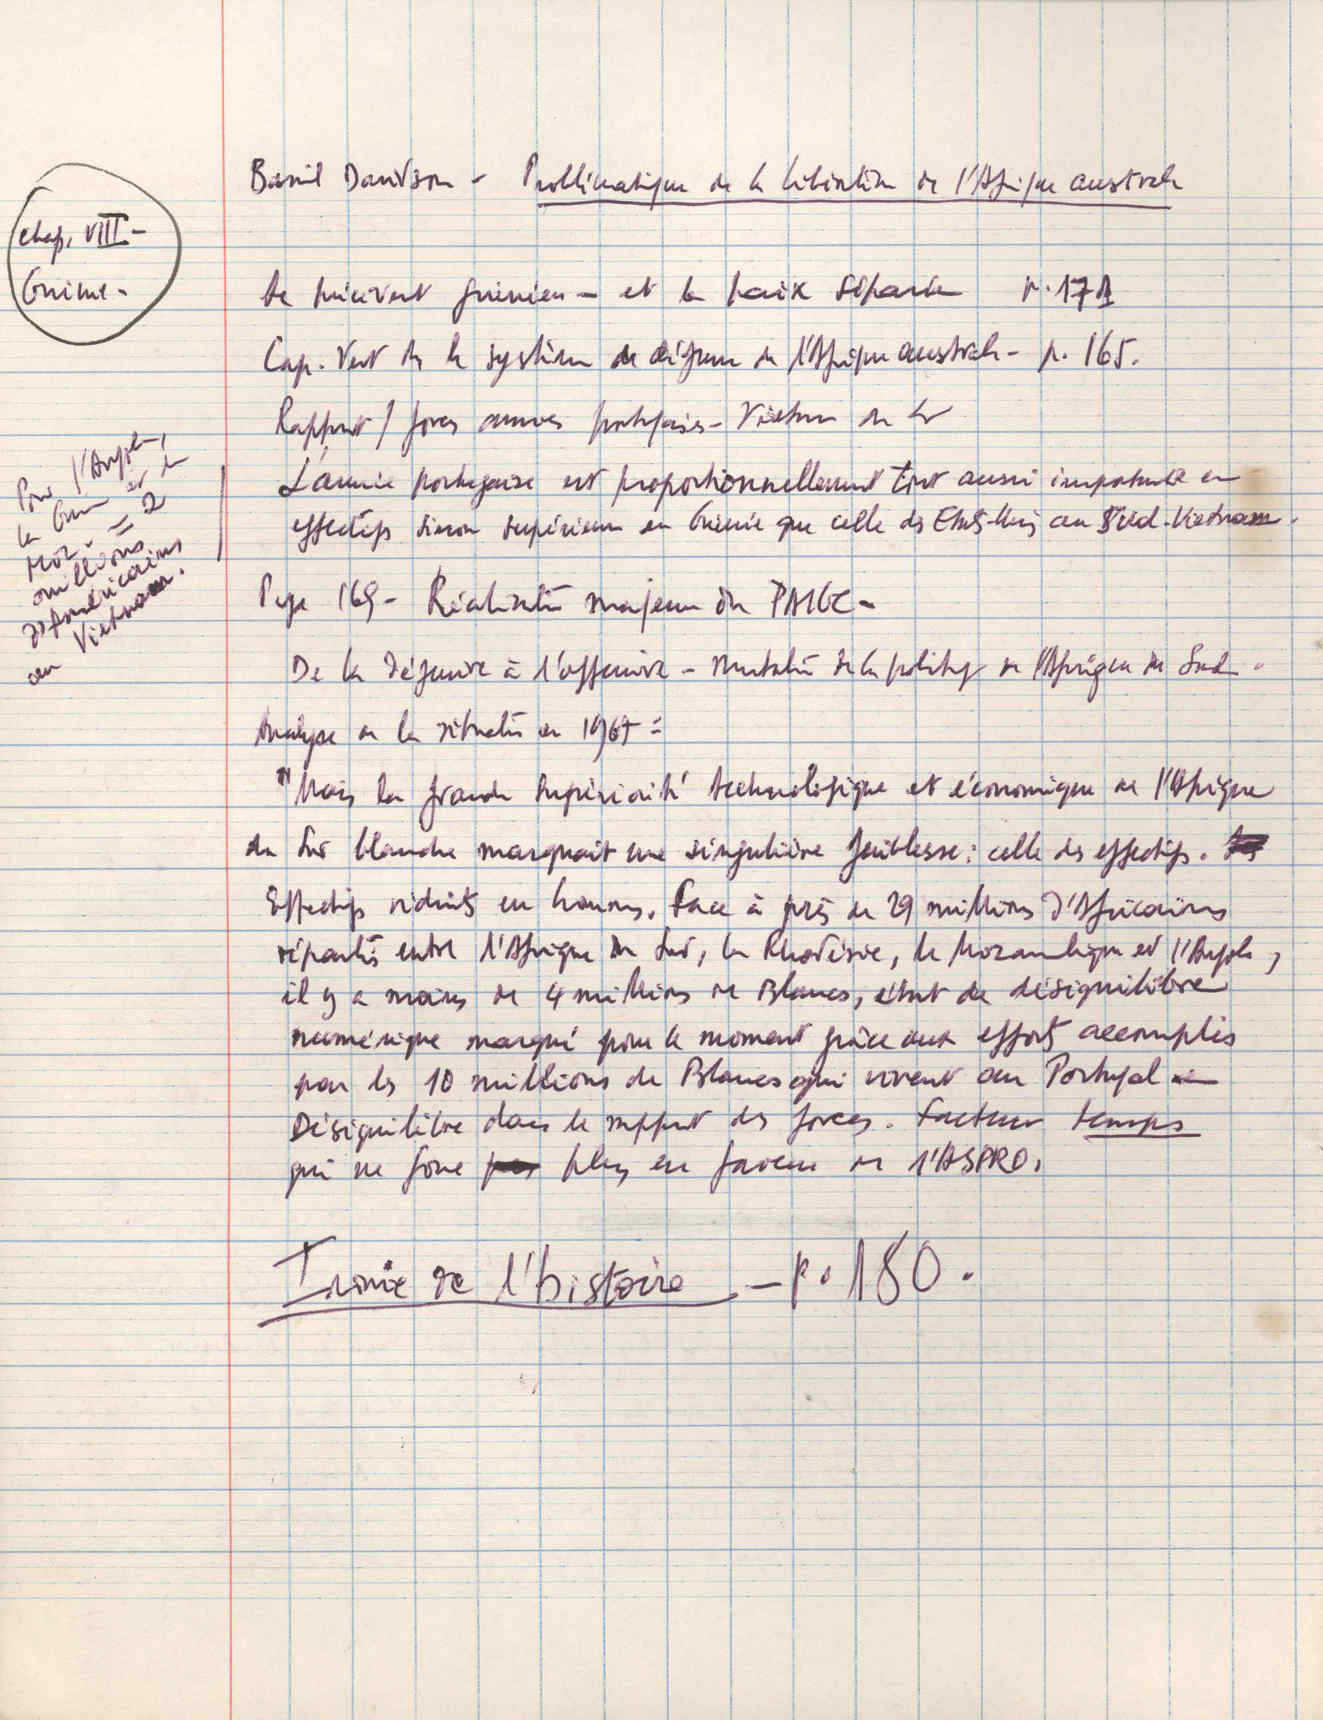 Basil Davidson - Problématique de la libération de l'Afrique australe
chap. VIII -
Guinée -
Le précédent guinéen - et la paix séparée p. 171
Cap. Vert ds le système de défense de l'Afrique australe - p. 165.
Rapport / forces armées portugaises - Vietnam
L'armée portugaise est proportionnellement tout aussi importante en
effectifs sinon supérieure en Guinée que celle des Etats-Unis au Sud-Vietnam.
Pour l'Angola,
la Guinée et le
Moz. = 2
millions
d'Américains
au Vietnam.
Page 169 - Réalisation majeure du PAIGC -
De la défensive à l'offensive - mutation de la politique de l'Afrique du Sud -
Analyse de la situation en 1967 =
"Mais la grande supériorité technologique et économique de l'Afrique
du Sud blanche masquait une singulière faiblesse : celle des effectifs.
Effectifs réduits en hommes. Face à près de 29 millions d'Africains
répartis entre l'Afrique du Sud, la Rhodésie, le Mozambique et l'Angola,
il y a moins de 4 millions de Blancs, état de déséquilibre
numérique masqué pour le moment grâce aux efforts accomplis
par les 10 millions de Blancs qui vivent au Portugal -
Déséquilibre dans le rapport des forces. Facteur temps
qui ne joue plus en faveur de l'ASPRO.
Ironie de l'histoire - p. 180.